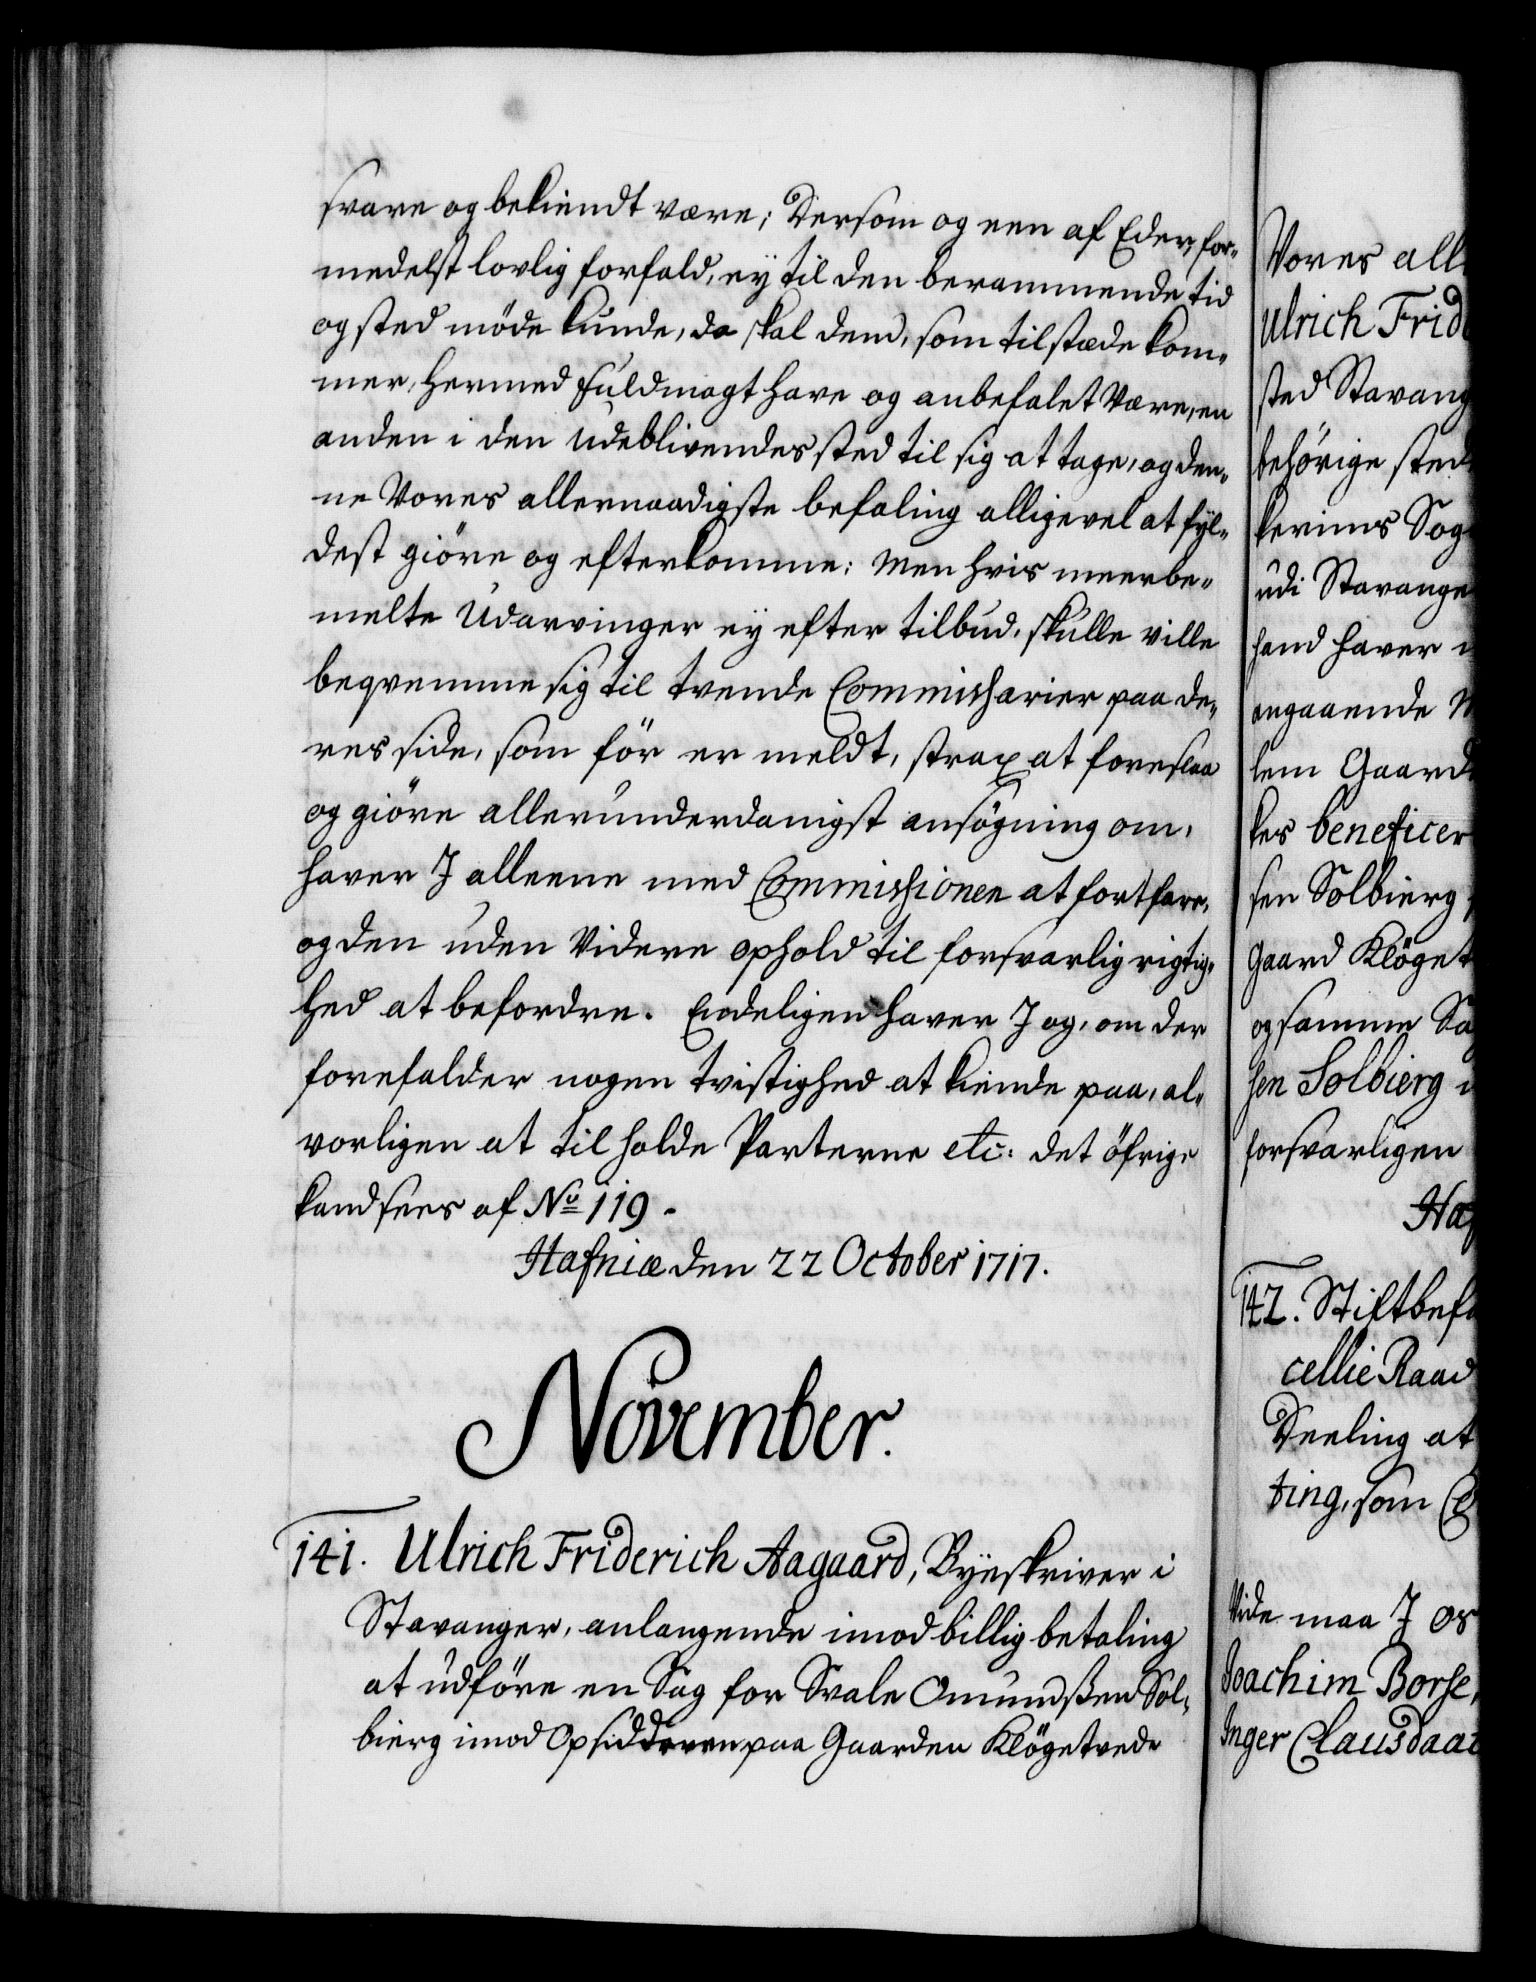 svare og bekiendt være; Dersom og een af Eder, for-
medelst lovlig forfald, ey til den berammende tid
og sted møde kunde, da skal dend, som tilstæde kom-
mer, hermed fuldmagt have og anbefalet være, en
anden i den udeblivendes sted til sig at tage, og den-
ne Vores allernaadigste befaling alligevel at fyl-
dest giöre og efterkomme: Men hvis meerbe-
melte Udarvinger ey efter tilbud, skulle ville
beqvemme sig til tvende Commissarier paa de-
res side, som för er meldt, strax at foreslaa
og giöre allerunderdanigst ansögning om,
haver I alleene med Commissionen at fortfare,
og den uden Videre ophold til forsvarlig rigtig-
hed at befordre. Endeligen haver I og, om der
forefalder nogen tvistighed at kiende paa, al-
vorligen at tilholde Parterne etc: det öfrige
kand sees af No 119.
Hafniæ den 22 October 1717.
November.
141. Ulrich Friderich Aagaard, Byeskriver i
Stavanger, anlangende imod billig betaling
at udföre en Sag for Svale Omundsßen Sol-
bierg imod Opsidderen paa Gaarden Klögetvede
Vores all
Ulrich Frid
sted Stavang
behörige sted
kerims Sog
udi Stavange
hand haver
angaaende
lem Gaard
kes beneficer
sen Solbierg
Gaard Klöget
og samme Sa
sen Solbierg
forsvarligen
Haf
142. Stiftbefa
cellie Raad
Deeling at
ting, som
Vide maa I os
Joachim Borse,
Inger Clausdaat